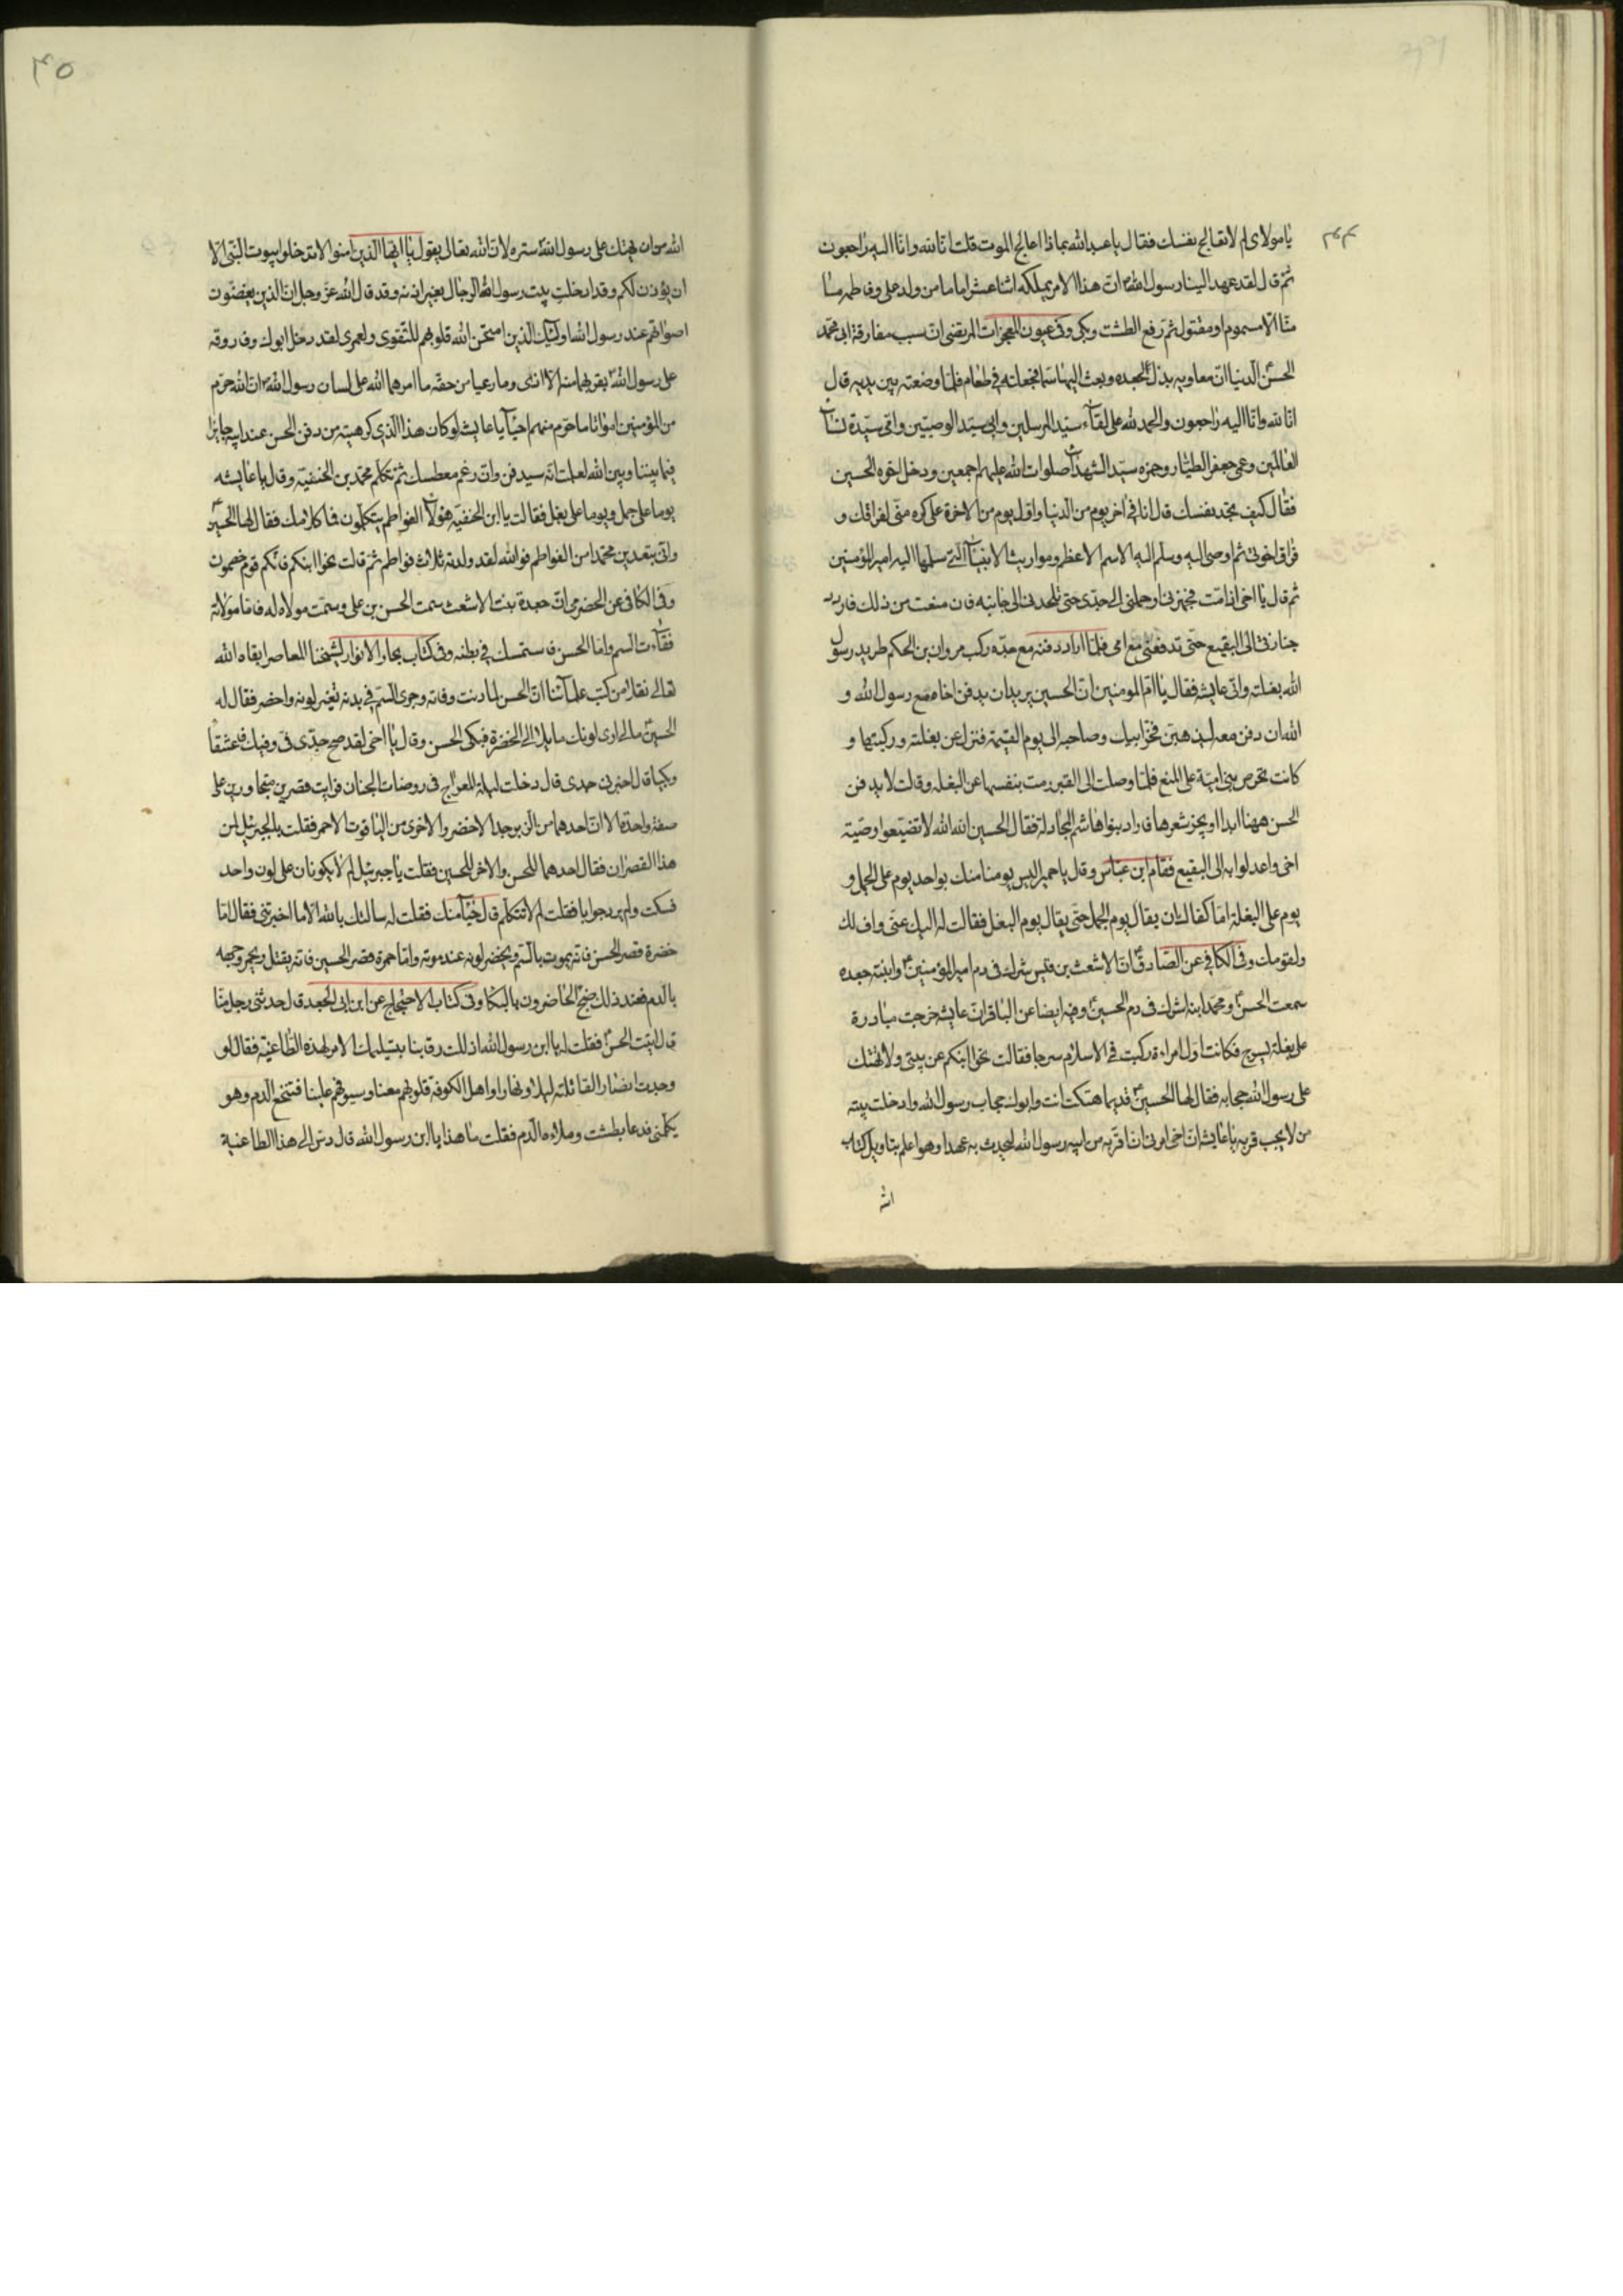 يا مولاى لم لا تعالج نفسك فقال يا عبد الله بماذا اعالج الموت قلت انا لله وانا اليه راجعون
ثم قال لقد عهد الينا رسول الله ان هذا الامر يملكه اثنا عشر اماما من ولد على وفاطمه
منا الا مسموم او مقتول ثم رفع الطشت وبكى وفى عيون المعجزات للمرتضى ان سبب مفارقة ابى محمد
الحسن الدنيا ان معاويه بذل لجعده وبعث اليها سما فجعلته فى طعام فلما وضعته بين يديه قال
انا لله وانا اليه راجعون والحمد لله على لقاء سيد المرسلين وابى سيد الوصيين وامى سيدة نساء
العالمين وعمى جعفر الطيار وحمزه سيد الشهداء صلوات الله عليهم اجمعين ودخل اخوه الحسين
فقال كيف تجد نفسك قال انا فى اخر يوم من الدنيا واول يوم من الاخرة على كره منى لفراقك و
فراق اخوتى ثم اوصى اليه وسلم اليه الاسم الاعظم ومواريث الانبياء التى سلمها اليه امير المؤمنين
ثم قال يا اخى اذا مت فجهزنى وحملنى الى جدى حتى تلحدنى الى جانبه فان منعت من ذلك فاردد
جنازتى الى البقيع حتى تدفننى مع امى فلما اراد دفنه مع جده ركب مروان بن الحكم طريد رسول
الله بغلته واتى عايشه فقال يا ام المومنين ان الحسين يريد ان يدفن اخاه مع رسول الله و
الله ان دفن معه ليذهبن فخر ابيك وصاحبه الى يوم القيمة فنزل عن بغلته وركبتها و
كانت تحرص بنى امية على المنع فلما وصلت الى القبر رمت بنفسها عن البغله وقالت لا يدفن
الحسن ههنا ابدا او يجز شعرها فاراد بنوا هاشم المجادلة فقال الحسين الله الله لا تضيعوا وصية
اخى واعدلوا به الى البقيع فقام ابن عباس وقال يا حميرا ليس يومنا منك بواحد يوم على الجمل و
يوم على البغلة اما كفاك ان يقال يوم الجمل حتى يقال يوم البغل فقالت له اليك عنى واف لك
ولقومك وفى الكافى عن الصادق ان الاشعث بن قيس شرك فى دم امير المؤمنين وابنته جعده
سمعت الحسن ومحمد ابنه شرك فى دم الحسين وفيه ايضا عن الباقر ان عايشه خرجت مبادرة
على بغلة بسرج فكانت اول امراءة ركبت فى الاسلام سرجا فقالت نحوا ابنكم عن بيتى ولا يهتك
على رسول الله حجابه فقال لها الحسين قديما هتكت انت وابوك حجاب رسول الله وادخلت بيته
من لا يحب قربه يا عايشه ان اخى امرنى ان اقربه من ابيه رسول الله ليحدث به عهدا وهو اعلم بتاويل كتاب
الله
٤٥
الله من ان يهتك على رسول الله ستره لان الله تعالى يقول يا ايها الذين امنوا لا تدخلوا بيوت النبى الا
ان يؤذن لكم وقد ادخلت بيت رسول الله الرجال بغير اذنه وقد قال الله عز وجل ان الذين يغضون
اصواتهم عند رسول الله اولئك الذين امتحن الله قلوبهم للتقوى ولعمرى لقد دخل ابوك وفاروقه
على رسول الله بقربهما منه الاذى وما رعيا من حقه ما امرهما الله على لسان رسول الله ان الله حرم
من المؤمنين امواتا ما حرم منهم احياء يا عايشه لو كان هذا الذى كرهتيه من دفن الحسن عند ابيه جايزا
فيما بيننا وبين الله لعلمت انه سيدفن وان رغم معطسك ثم تكلم محمد بن الحنفيه وقال يا عايشه
يوما على جمل ويوما على بغل فقالت يا ابن الحنفيه هؤلاء الفواطم يتكلمون فما كلامك فقال لها الحسين
وانى تبعدين محمدا من الفواطم فوالله لقد ولدته ثلاث فواطم ثم قالت نحوا ابنكم فانكم قوم خصمون
وفى الكافى عن الحضرمى ان جعدة بنت الاشعث سمت الحسن بن على وسمت مولاه له فاما مولاته
فقاءت السم واما الحسن فاستمسك فى بطنه وفى كتاب بحار الانوار لشيخنا المعاصر ابقاه الله
تعالى نقلا من كتب علمائنا ان الحسن لما دنت وفاته وجرى السم فى بدنه تغير لونه واخضر فقال له
الحسين مالى ارى لونك مايلا الى الخضرة فبكى الحسن وقال يا اخى لقد صح حديث جدى فى وفيك فاعتنقا
وبكيا قال اخبرنى جدى قال دخلت ليلة المعراج فى روضات الجنان فرايت قصرين متجاورين على
صفة واحدة الا ان احدهما من الزبرجد الاخضر والاخرى من الياقوت الاحمر فقلت يا جبرئيل لمن
هذا القصران فقال احدهما للحسن والاخر للحسين فقلت يا جبرئيل لم لا يكونان على لون واحد
فسكت ولم يرد جوابا فقلت لم لا تتكلم قال حياء منك فقلت له سالتك بالله الا ما اخبرتنى فقال اما
خضرة قصر الحسن فانه يموت بالسم ويخضر لونه عند موته واما حمرة قصر الحسين فانه يقتل ويحمر وجهه
بالدم فعند ذلك ضج الحاضرون بالبكا وفى كتاب الاحتجاج عن ابن ابى الجعد قال حدثنى رجل منا
قال اتيت الحسن فقلت له يا ابن رسول الله اذللت رقابنا بتسليمك الامر لهذه الطاغية فقال لو
وجدت انصارا لقاتلته ليلا ونهارا واهل الكوفة قلوبهم معنا وسيوفهم علينا فتنخع الدم وهو
يكلمنى فدعا بطشت وملاءه الدم فقلت ما هذا يا ابن رسول الله قال دس الى هذا الطاغية